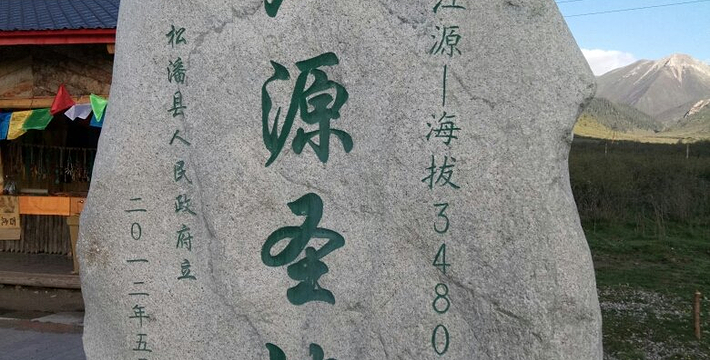 江源—海拔3480
源圣
松潘县人民政府立
二〇一二年五